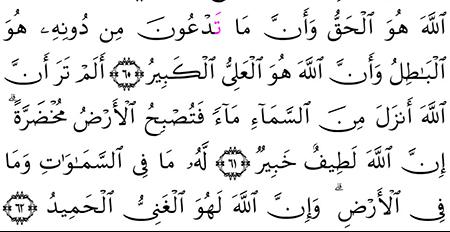 ٱللَّهَ هُوَ ٱلْحَقُّ وَأَنَّ مَا تَدْعُونَ مِن دُونِهِۦ هُوَ
ٱلْبَٰطِلُ وَأَنَّ ٱللَّهَ هُوَ ٱلْعَلِىُّ ٱلْكَبِيرُ ٦٠ أَلَمْ تَرَ أَنَّ
ٱللَّهَ أَنزَلَ مِنَ ٱلسَّمَآءِ مَآءً فَتُصْبِحُ ٱلْأَرْضُ مُخْضَرَّةً ۗ
إِنَّ ٱللَّهَ لَطِيفٌ خَبِيرٌ ٦١ لَّهُۥ مَا فِى ٱلسَّمَٰوَٰتِ وَمَا
فِى ٱلْأَرْضِ ۗ وَإِنَّ ٱللَّهَ لَهُوَ ٱلْغَنِىُّ ٱلْحَمِيدُ ٦٢